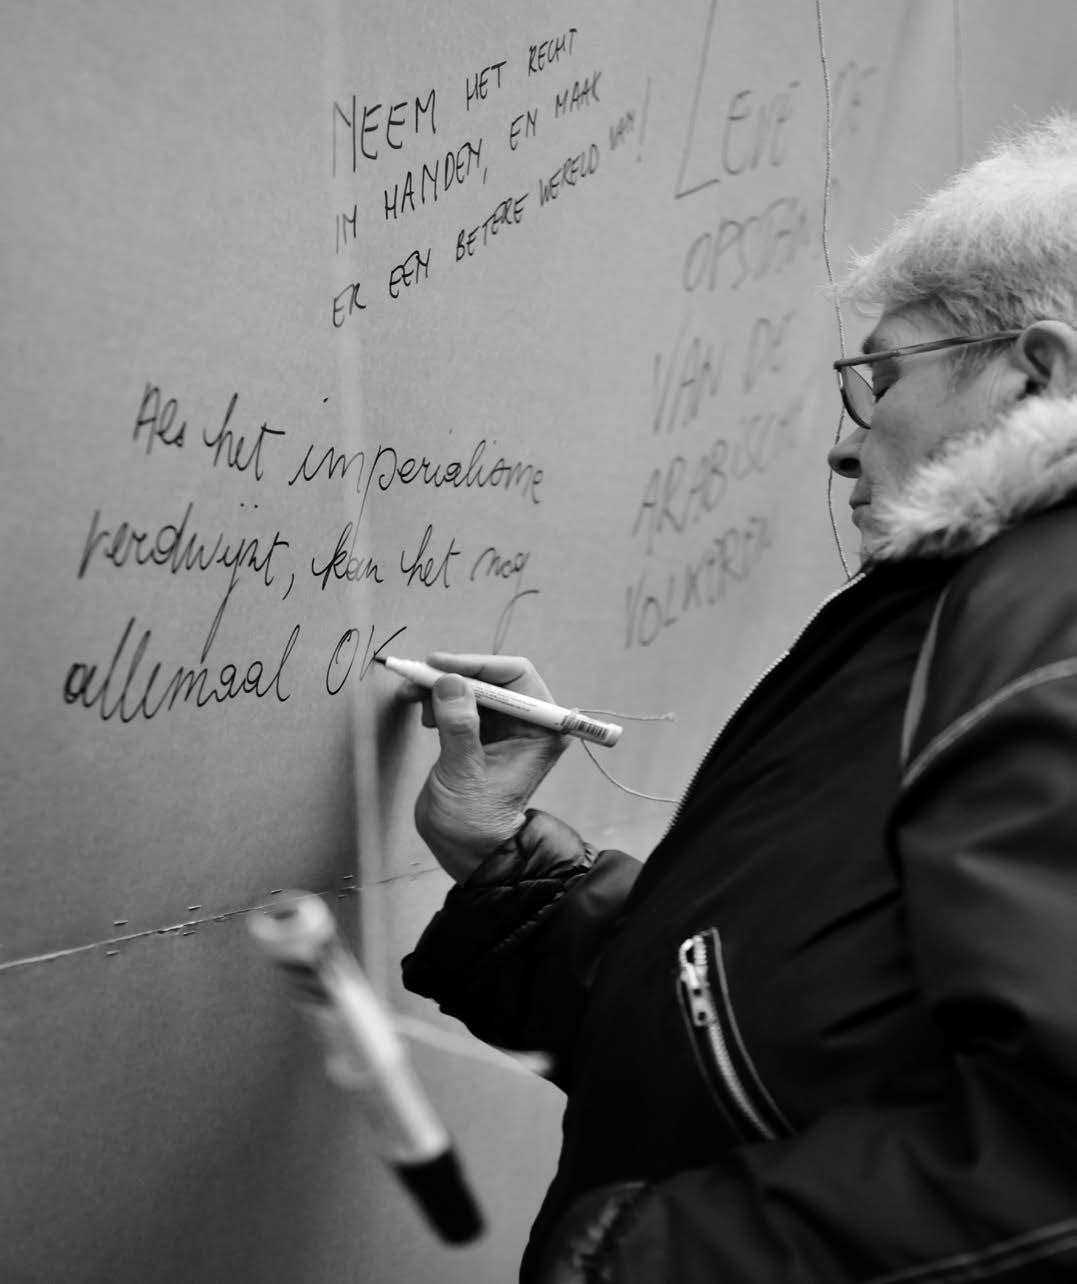 NEEM HET RECHT
IN HANDEN, EN MAAK
ER EEN BETERE WERELD VAN!
LEVE DE
OPSTAN
VAN DE
ARABISCHE
VOLKEREN
Als het imperialisme
verdwijnt, kan het nog
allemaal OK